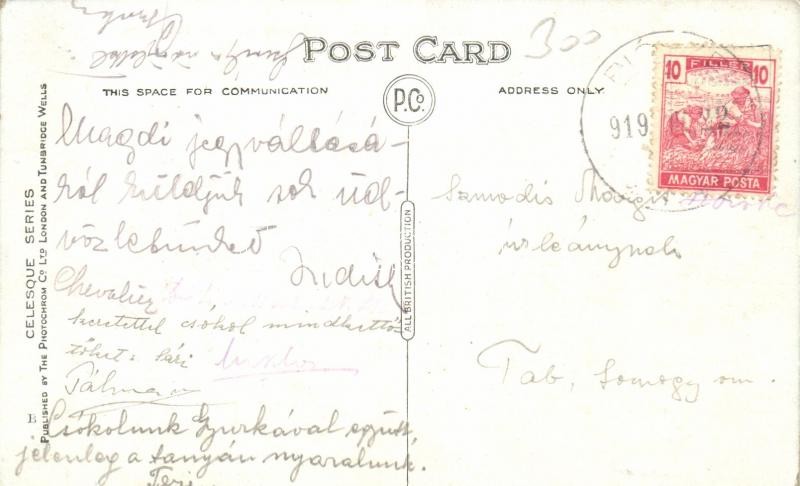 POST CARD
300
THIS SPACE FOR COMMUNICATION
P.Co.
ADDRESS ONLY
FILLÉR
10 10
MAGYAR POSTA
919
22
CELESQUE SERIES
PUBLISHED BY THE PHOTOCHROM CO LTD LONDON AND TUNBRIDGE WELLS
B
ALL BRITISH PRODUCTION
Magdi jegyváltásá-
ról küldjük sok üd-
vözletünket
Judith
Chevalier
szeretettel csókol mindkettő-
tőket: Sári
Pálma
Csókolunk Gyurkával együtt
jelenleg a tanyán nyaralunk.
Teri
Szmodis Margit
úrleánynak
Tab, Somogy vm.